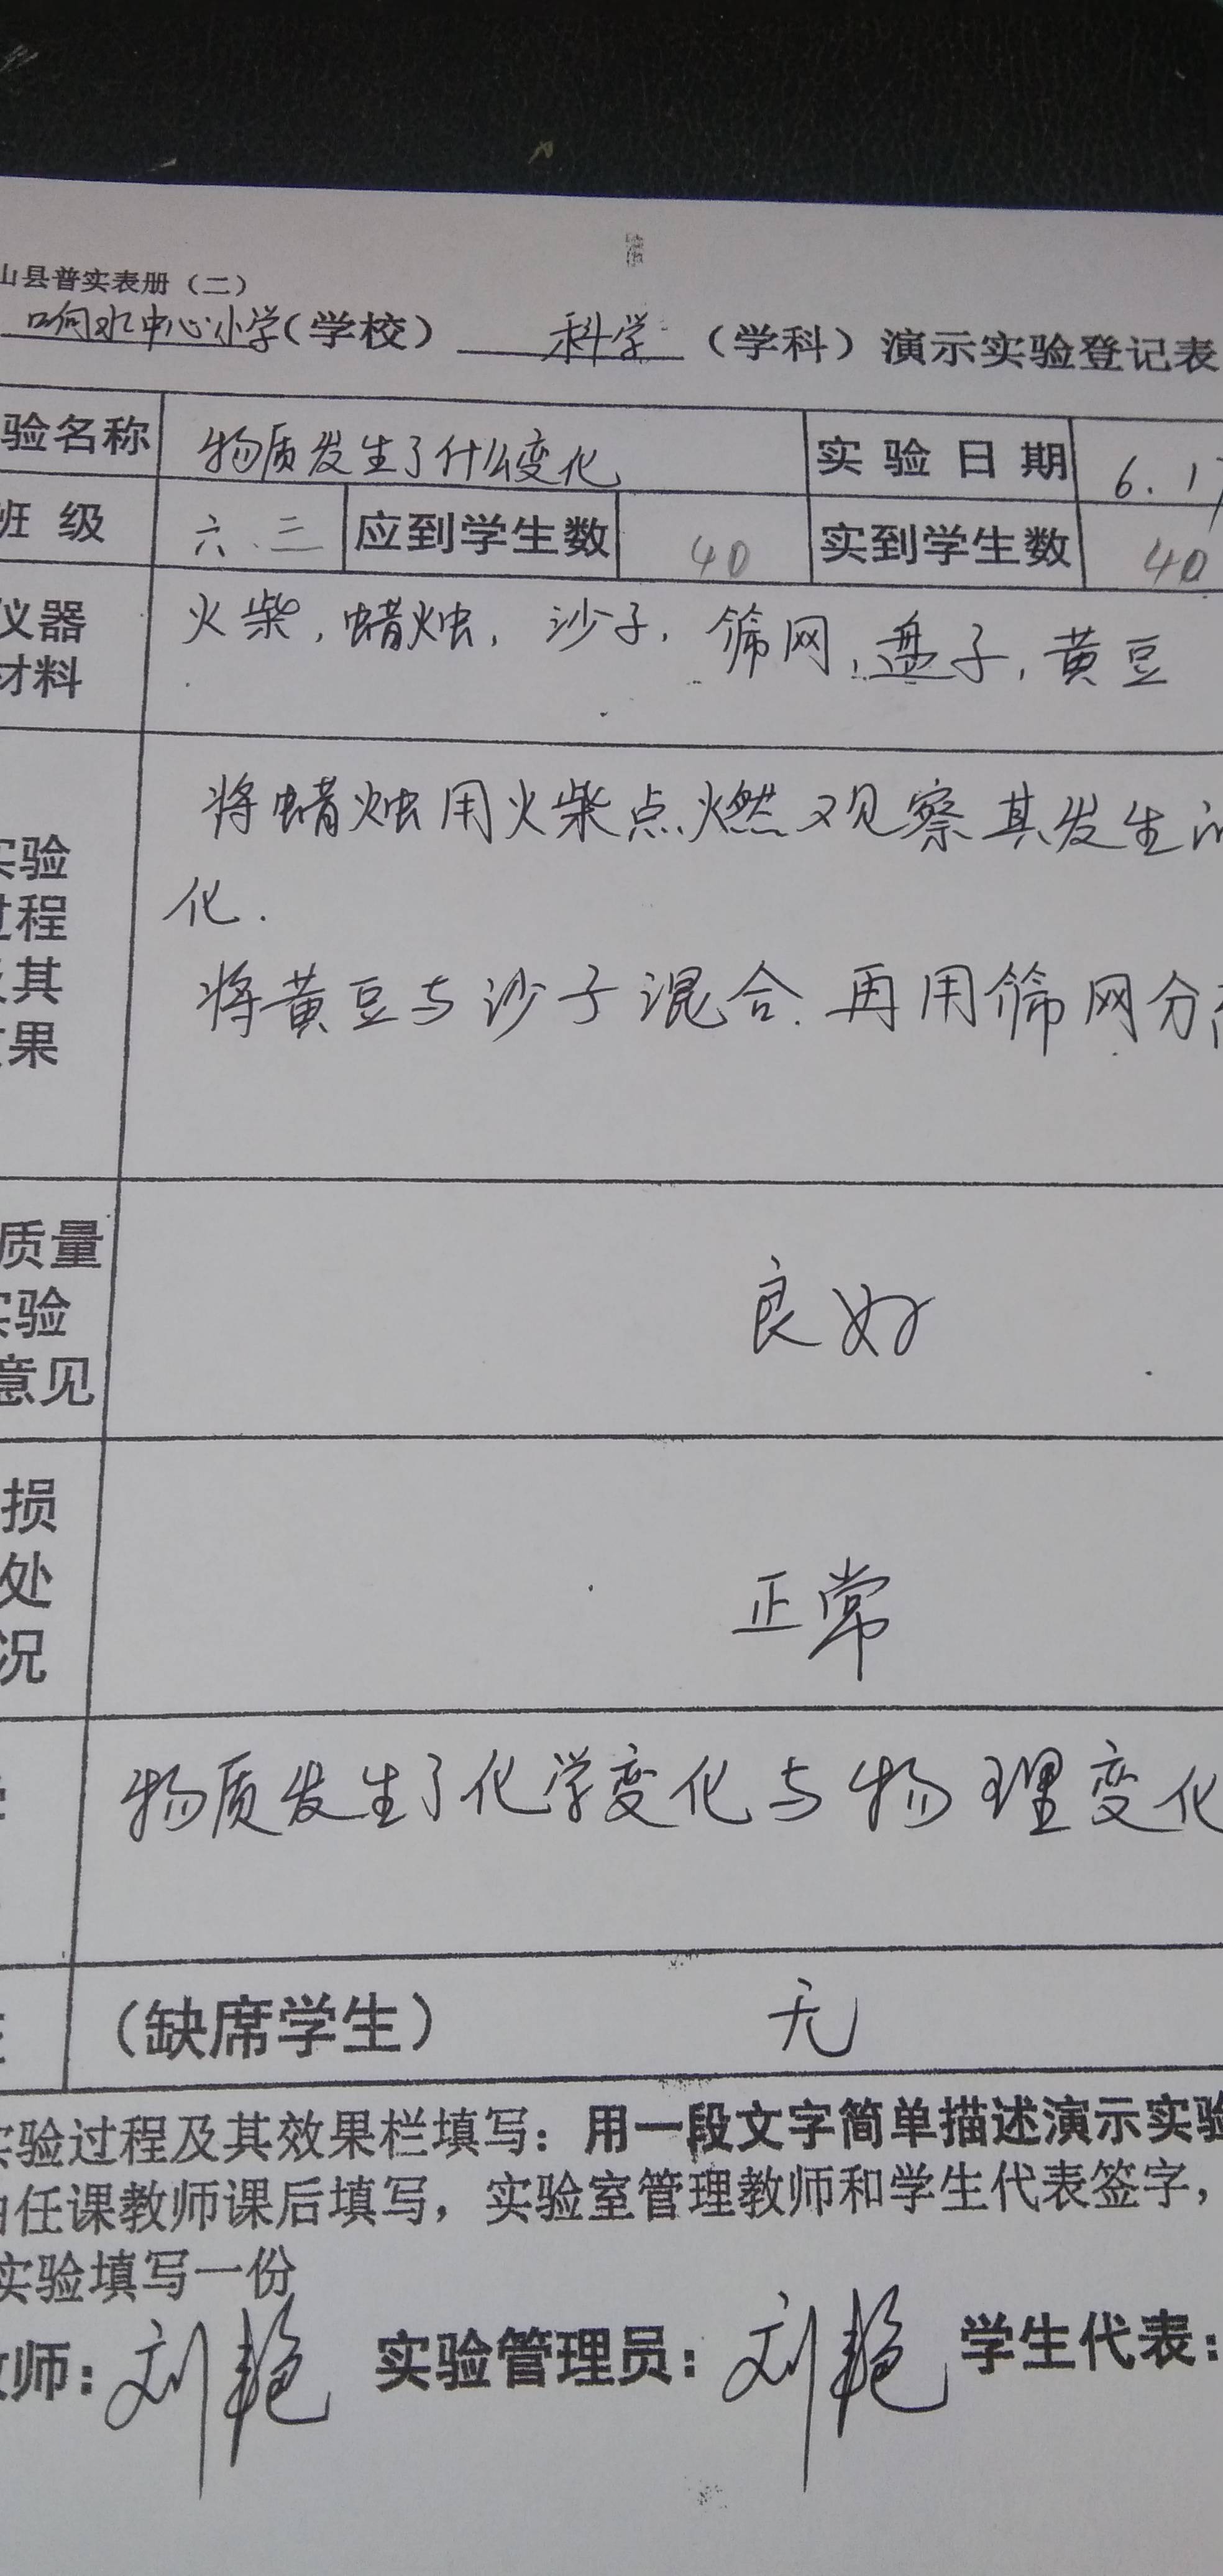 山县普实表册（二）
响水中心小学（学校） 科学 （学科）演示实验登记表
验名称 物质发生了什么变化 实验日期 6.17
班级 六.三 应到学生数 40 实到学生数 40
仪器 火柴，蜡烛，沙子，筛网，盘子，黄豆
材料
将蜡烛用火柴点燃观察其发生
实验
化.
过程
及其 将黄豆与沙子混合.再用筛网分
效果
质量
实验 良好
意见
损
处 正常
况
物质发生了化学变化与物理变化
（缺席学生） 无
实验过程及其效果栏填写：用一段文字简单描述演示实验
由任课教师课后填写，实验室管理教师和学生代表签字，
实验填写一份
教师：刘艳 实验管理员：刘艳 学生代表：